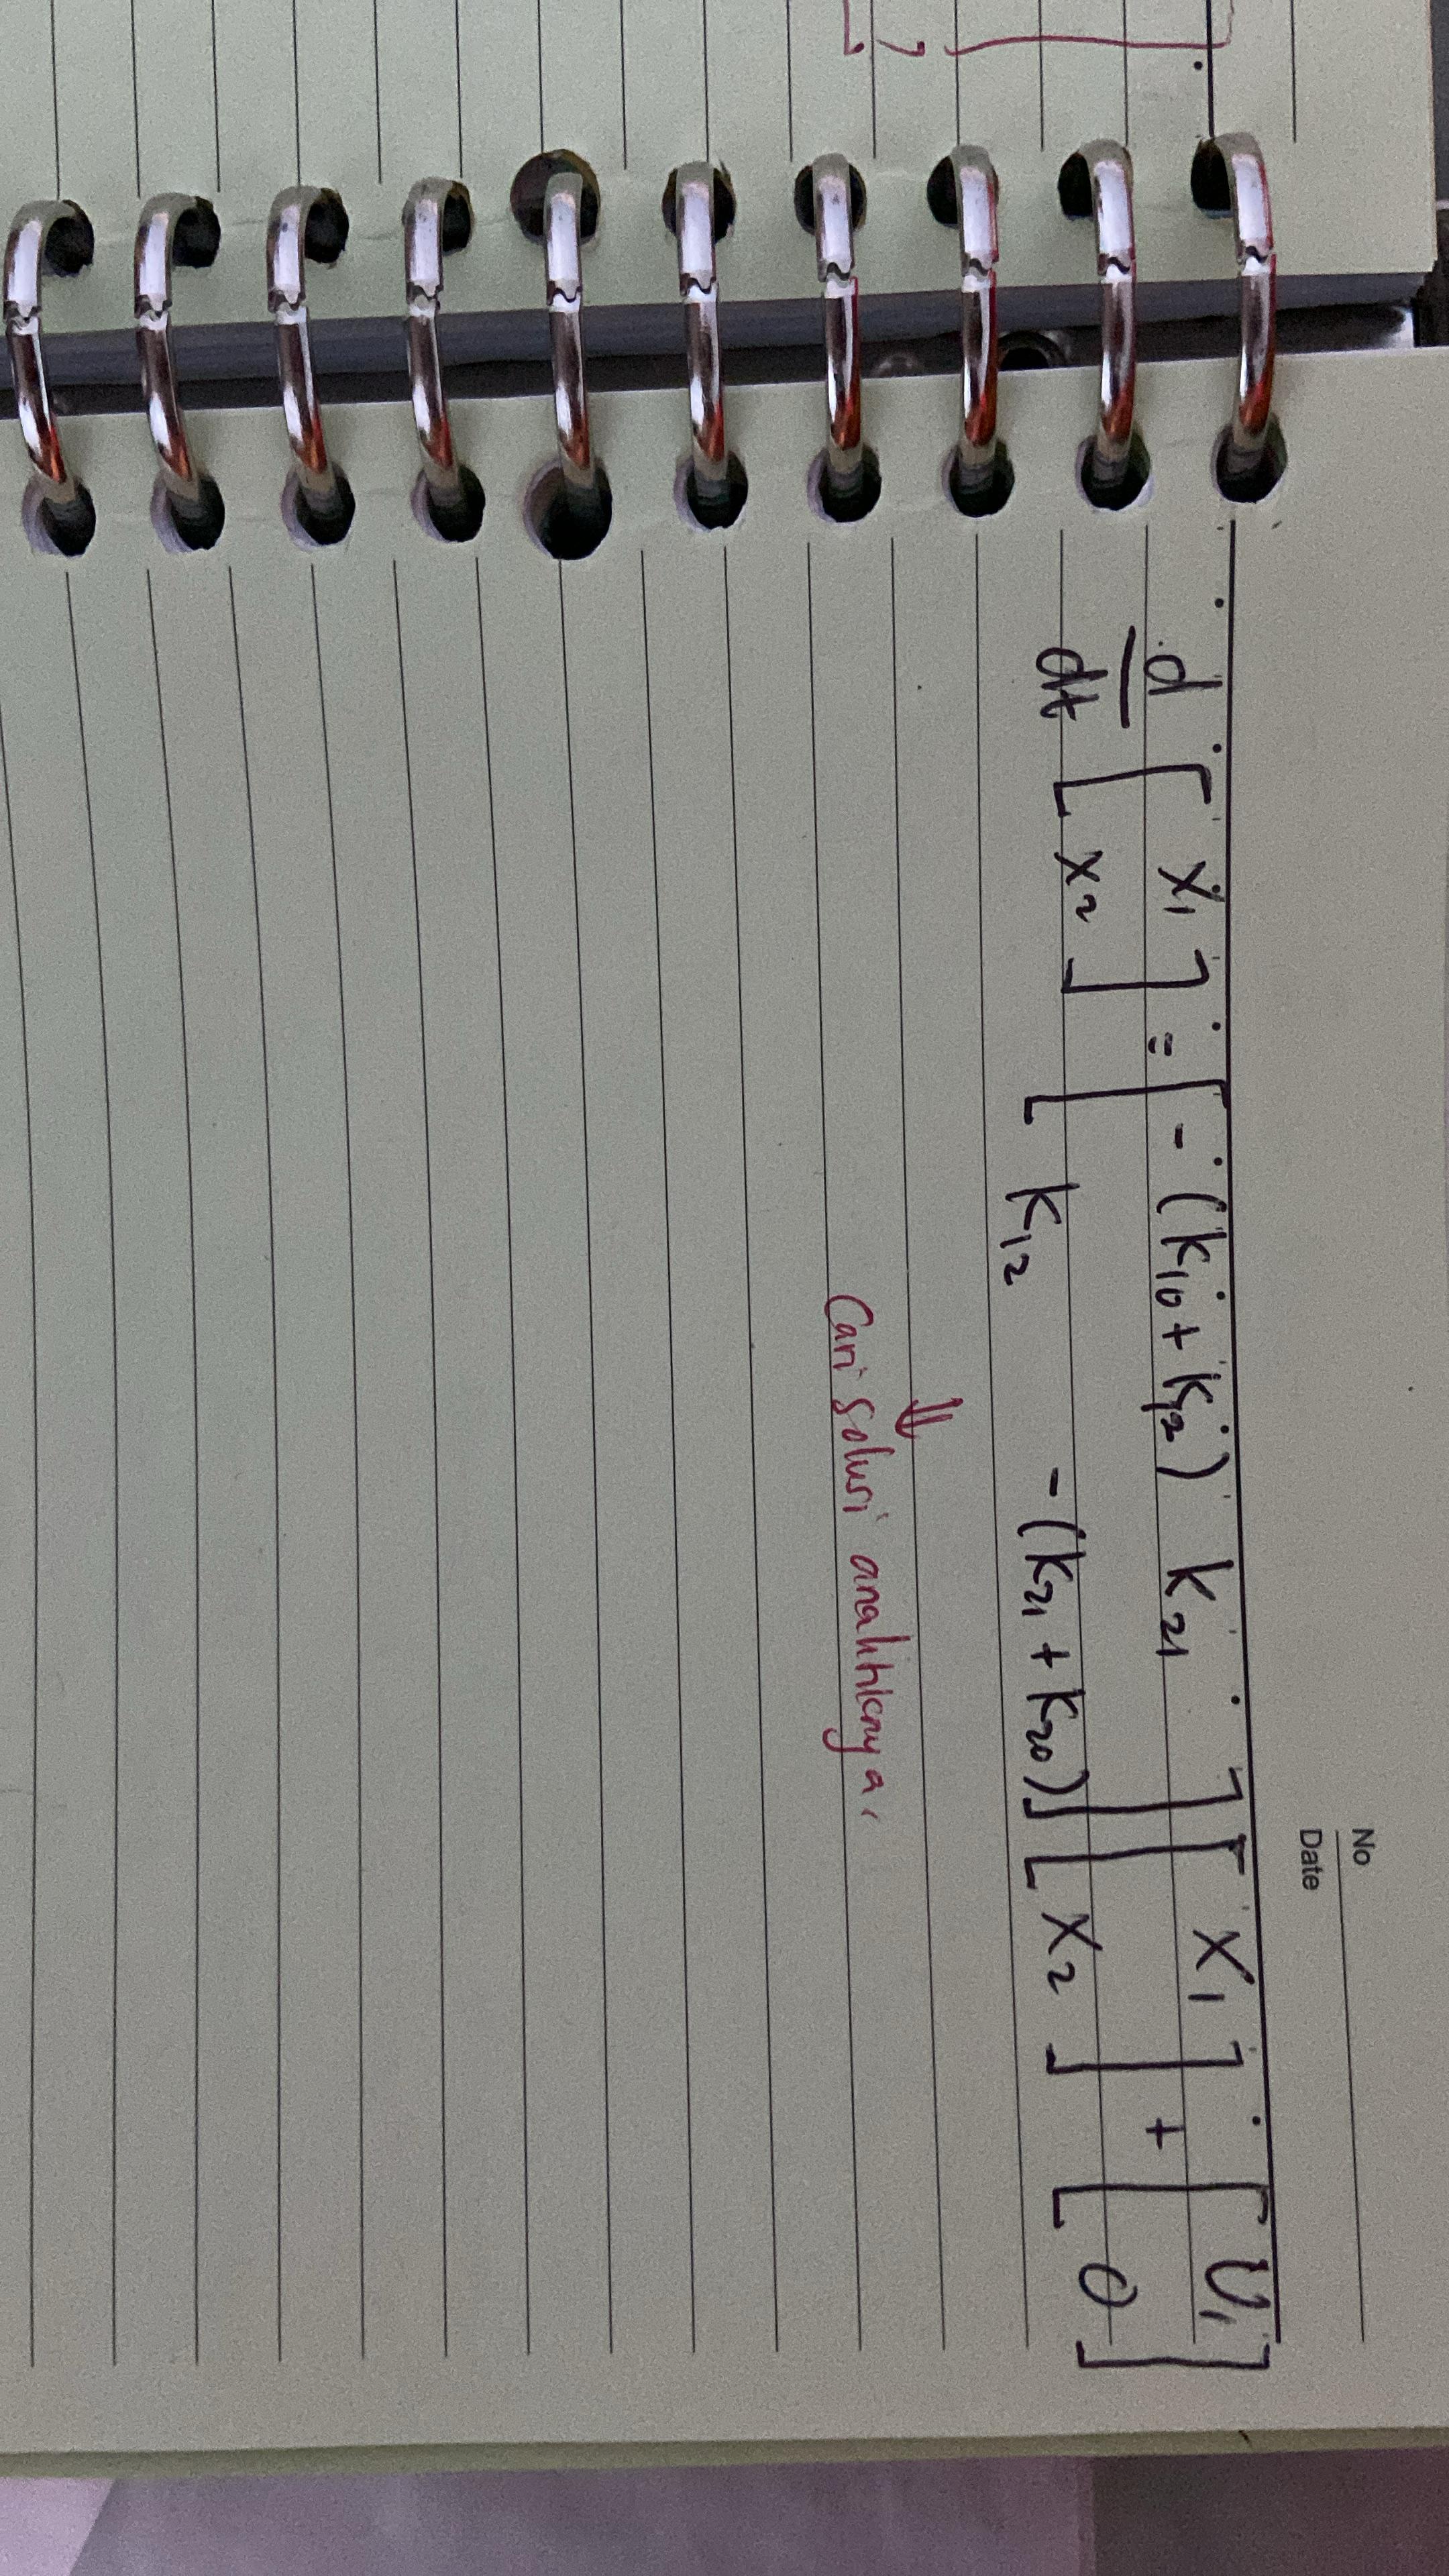 No
Date
d/dt [x1 x2] = [-(K10 + K12) K21 K12 -(K21 + K20)] [X1 X2] + [U1 0]
⇓
Cari solusi analitiknya.
?